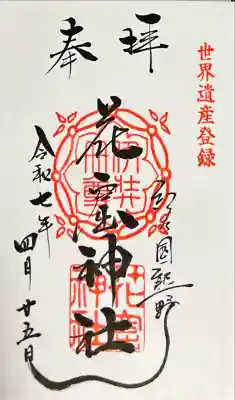 世界遺産登録
奉拝
国熊野
花窟神社
令和七年四月廿五日
花窟
神社